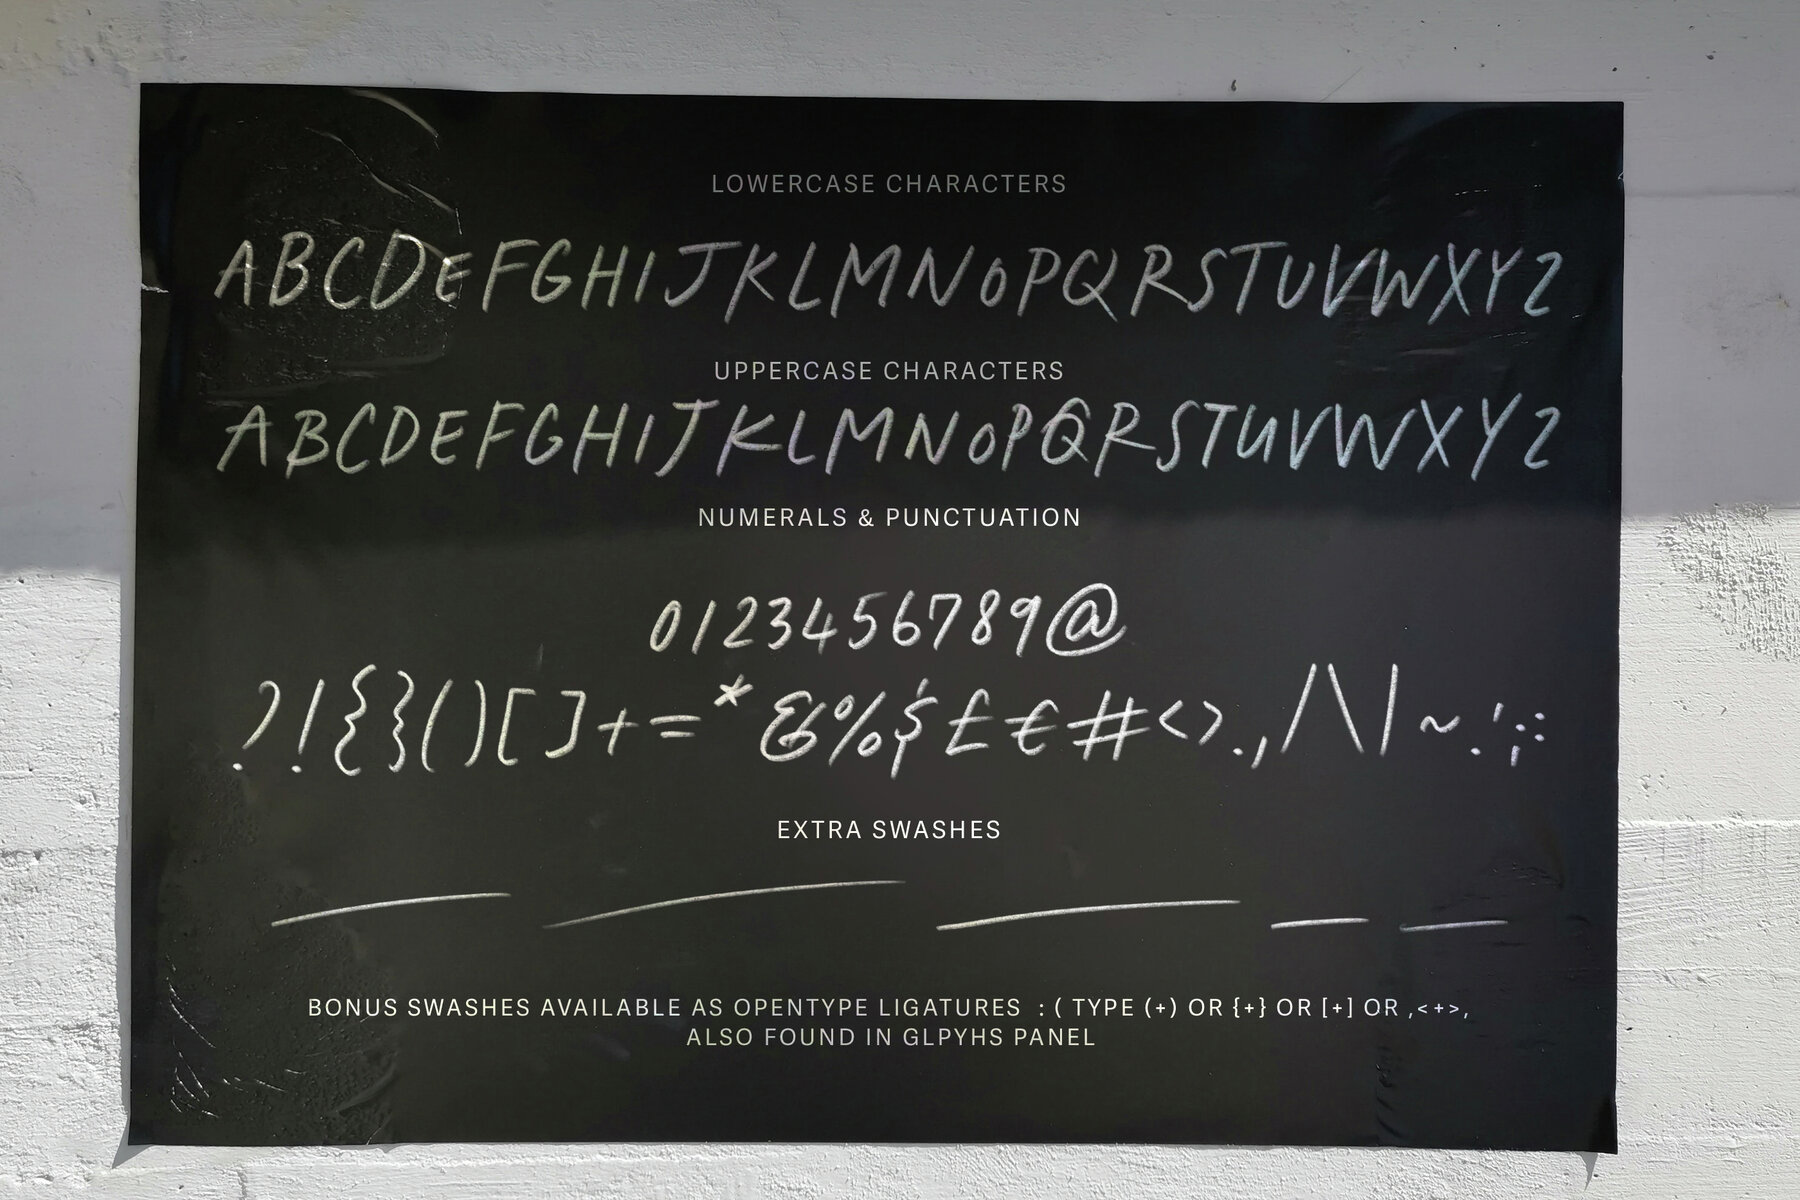 LOWERCASE CHARACTERS
ABCDEFGHIJKLMNOPQRSTUVWXYZ
UPPERCASE CHARACTERS
ABCDEFGHIJKLMNOPQRSTUVWXYZ
NUMERALS & PUNCTUATION
0123456789@
?!{}()[]+=*&%$£€#<>.,/\|~.';:
EXTRA SWASHES
BONUS SWASHES AVAILABLE AS OPENTYPE LIGATURES : ( TYPE (+) OR {+} OR [+] OR ,<+>,
ALSO FOUND IN GLPYHS PANEL